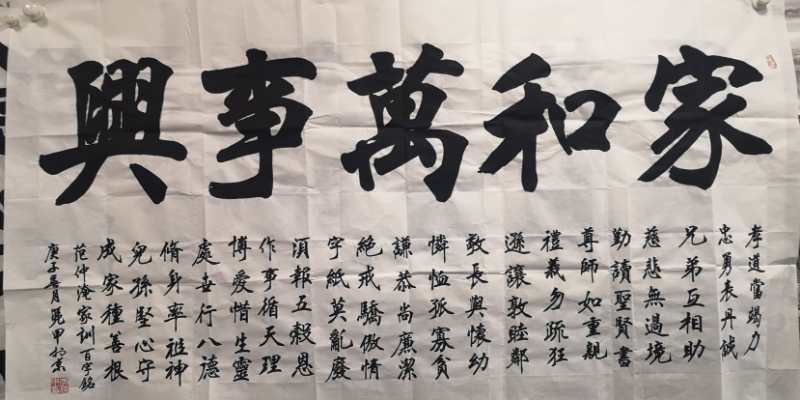 家和萬事興
孝道當竭力
忠勇表丹誠
兄弟互相助
慈悲無過境
勤讀聖賢書
尊師如重親
禮義勿疏狂
遜讓敦睦鄰
敬長與懷幼
憐恤孤寡貧
謙恭尚廉潔
絕戒驕傲情
字紙莫亂廢
湏報五穀恩
作事循天理
博愛惜生靈
處世行八德
脩身率祖神
兒孫堅心守
成家種善根
范仲淹家訓百字銘
庚子月甲於京